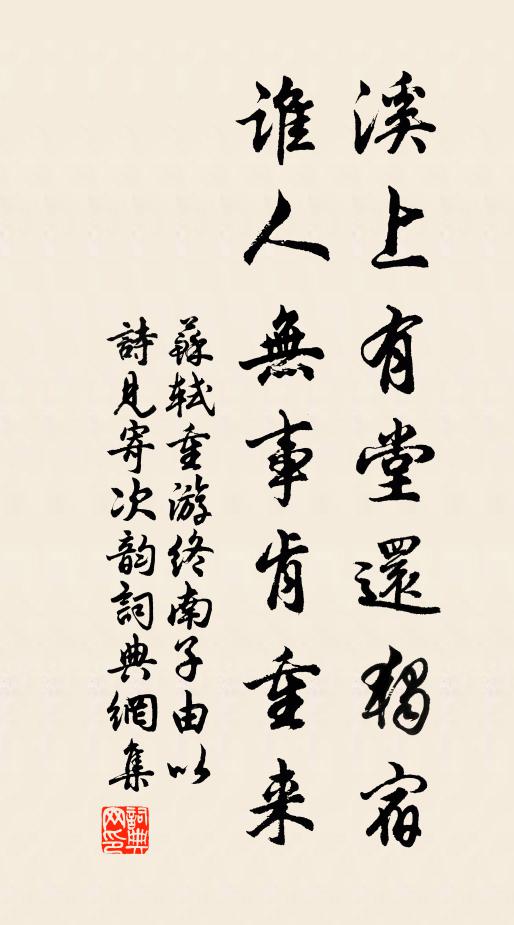 溪上有堂還獨宿
誰人無事肯重来
蘇軾重游終南子由以
詩見寄次韵詞典網集
詞典
网印